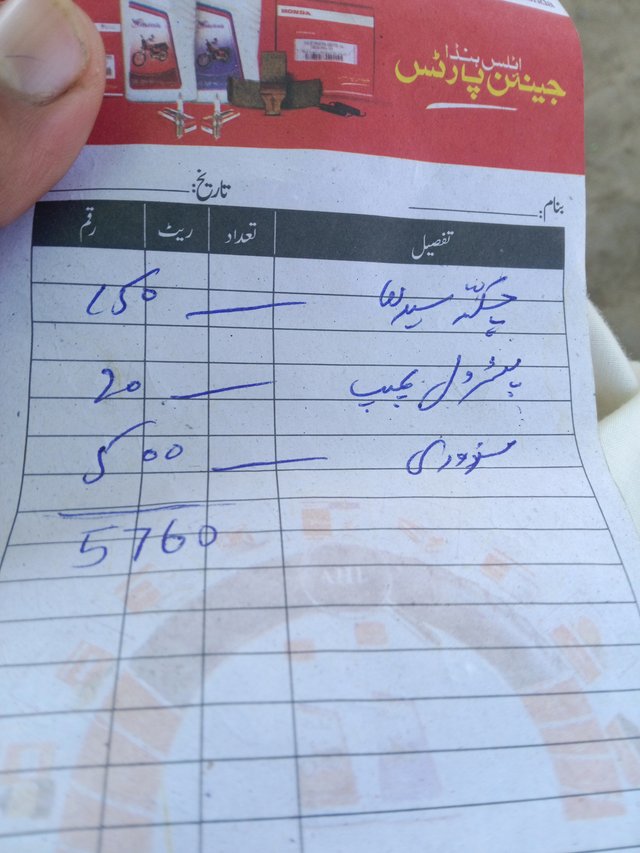 HONDA
اٹلس ہنڈا
جینئن پارٹس
بنام: تاریخ:
تفصیل تعداد ریٹ رقم
چیکنہ 150
پیٹرول پمپ 20
مزدوری 500
5760